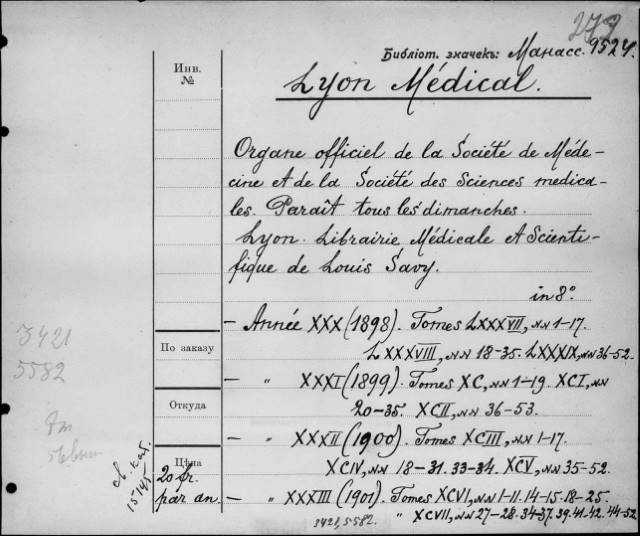 272
Библіот. значекъ: Манасс. 9524.
Инв.
№
Lyon Médical.
Organe officiel de la Société de Méde-
cine et de la Société des Sciences medica-
les. Paraît tous les dimanches.
Lyon. Librairie Médicale et Scienti-
fique de Louis Savy.
in 8°.
– Année XXX (1898). Tomes LXXXVII, NN 1-17.
LXXXVIII, NN 18-35. LXXXIX, NN 36-52.
3421
5582
По заказу
– " XXXI (1899). Tomes XC, NN 1-19. XCI, NN
20-35. XCII, NN 36-53.
Откуда
– " XXXII (1900). Tomes XCIII, NN 1-17.
XCIV, NN 18-31. 33-34. XCV, NN 35-52.
Цѣна
20 fr.
par an.
– " XXXIII (1901). Tomes XCVI, NN 1-11. 14-15. 18-25.
" XCVII, NN 27-28. 34-37. 39. 41-42. 44-52
3421, 5582.